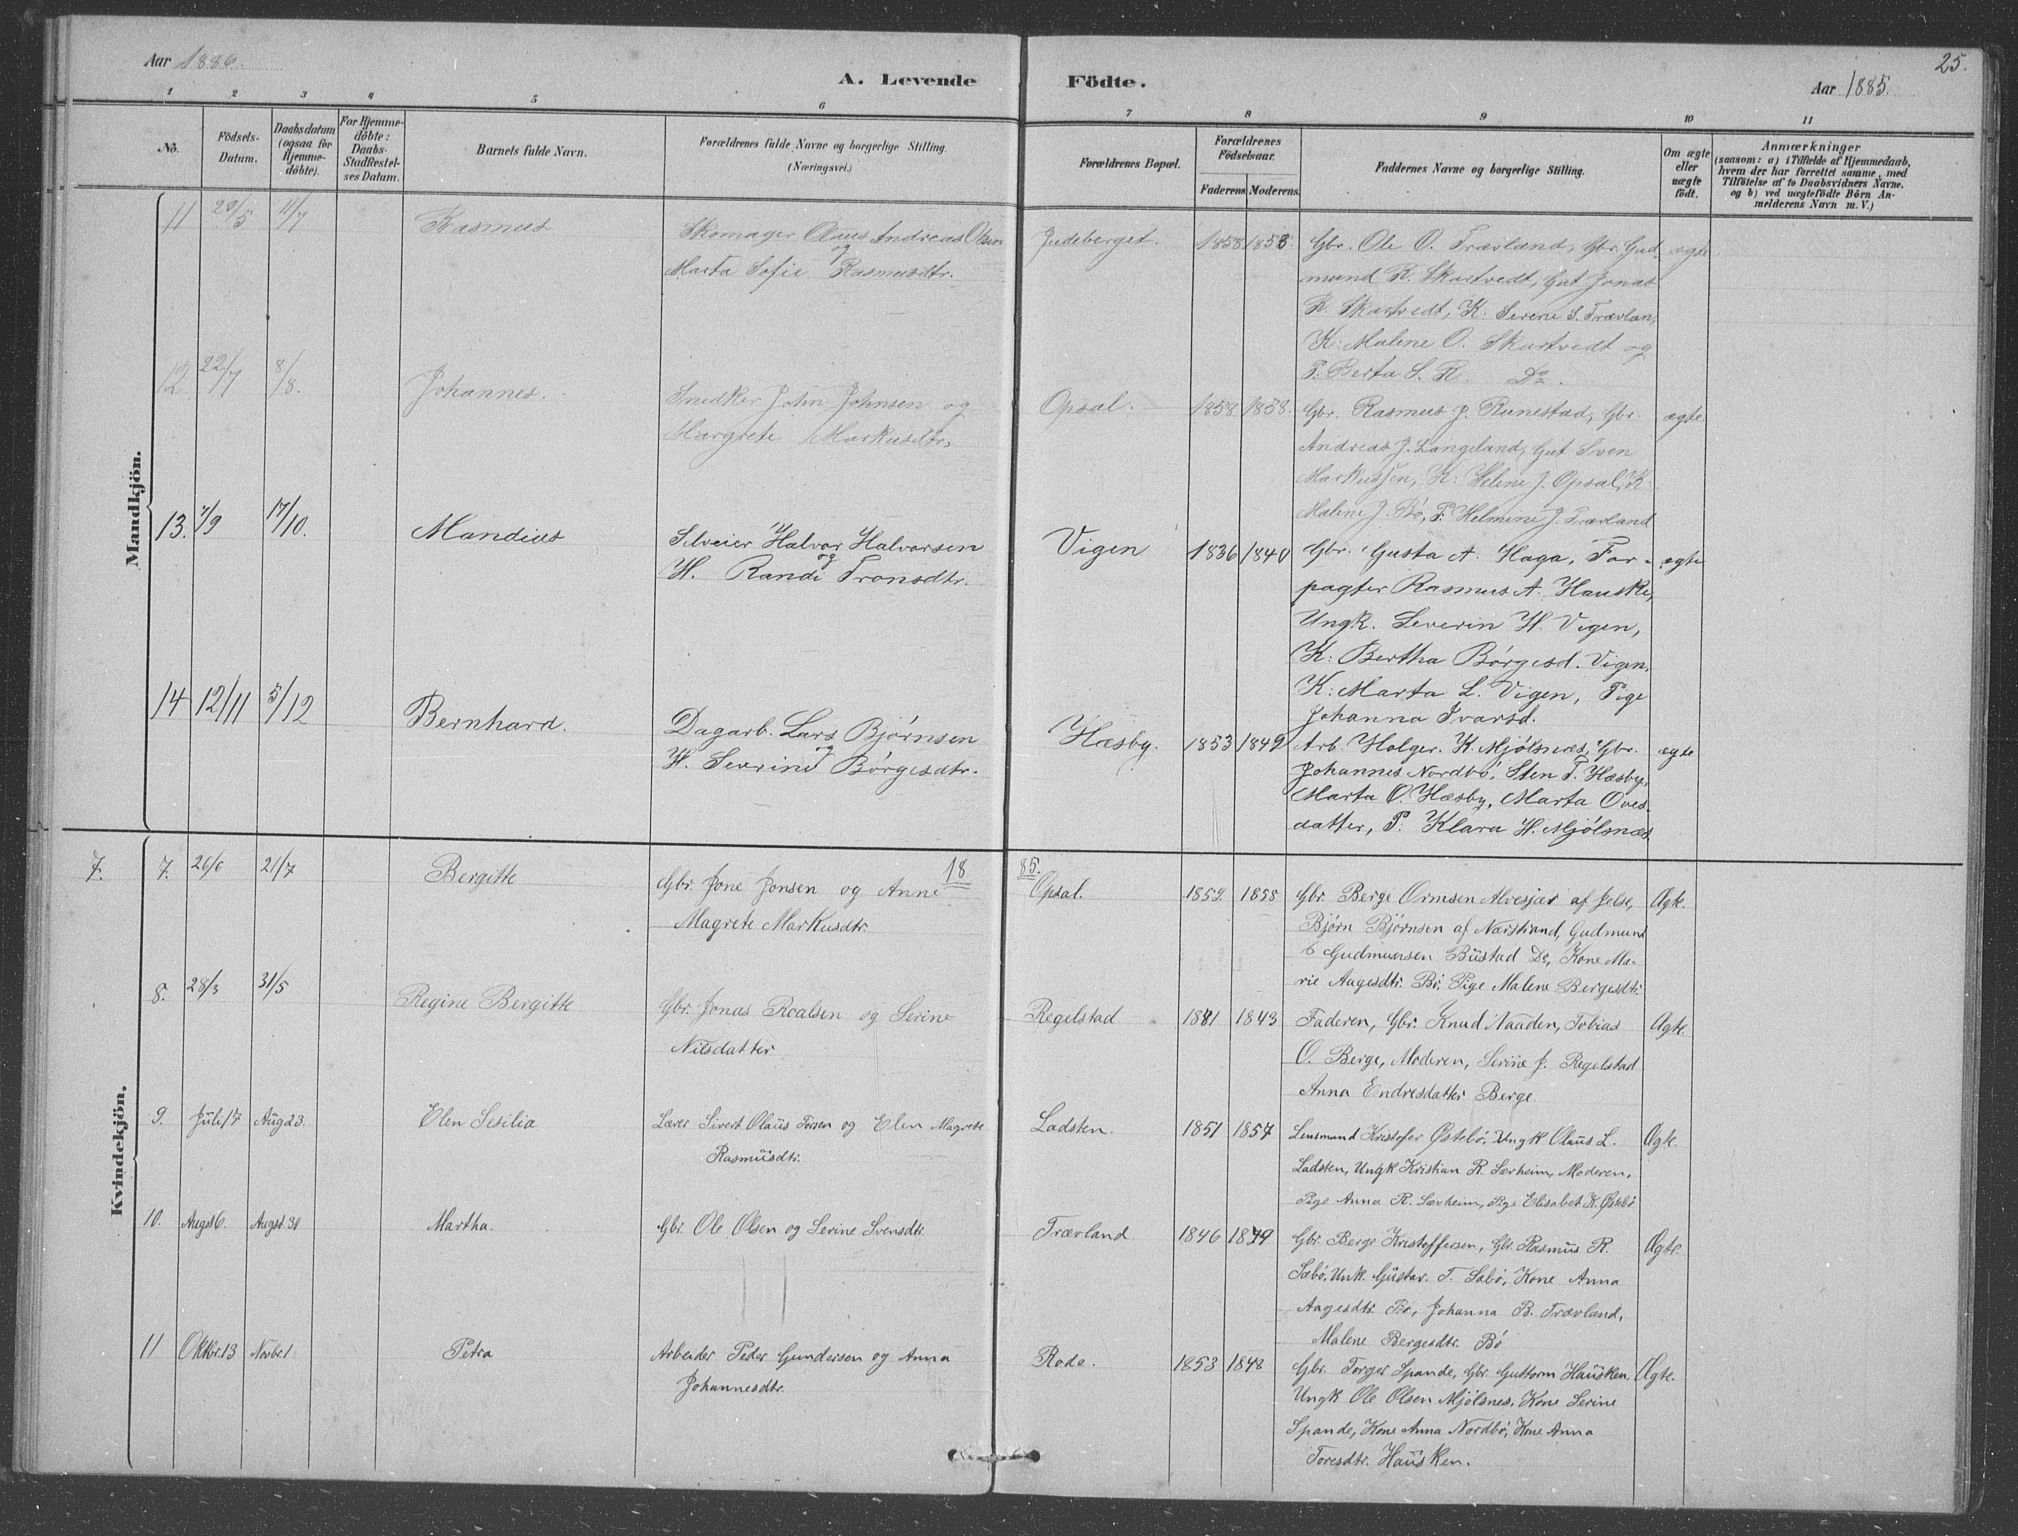 Aar 1886.
A. Levende Födte.
Aar 1885.
25.
1 2 3 4 5 6 7 8 9 10 11
No.
Födsels-
Datum.
Daabsdatum
(ogsaa for
Hjemme-
döbte).
For Hjemme-
döbte:
Daabs-
Stadfestel-
ses Datum.
Barnets fulde Navn.
Forældrenes fulde Navne og borgerlige Stilling.
(Næringsvei.)
Forældrenes Bopæl.
Forældrenes
Födselsaar.
Faderens. Moderens.
Faddernes Navne og borgerlige Stilling.
Om ægte
eller
uægte
födt.
Anmærkninger
(saasom: a) i Tilfælde af Hjemmedaab,
hvem der har forrettet samme, med
Tilföielse af to Daabsvidners Navne.
og b) ved uægtefödte Börn An-
melderens Navn m. V.)
Mandkjön.
11 29/5 11/7 Rasmus
Skomager Olaus Andreas Olsen
og
Marta Sofie Rasmusdtr.
Judeberget. 1858 1858.
Gbr. Ole O. Trævland, Gbr. Gud-
mund R. Skartvedt, Gut Jonas
R. Skartvedt, K. Serene S. Trævlan,
K: Malene O. Skartvedt og
P. Berta S. R. Do.
ægte
12 22/7 8/8. Johannes.
Snedker John Johnsen og
Margrete Markusdtr.
Opsal. 1858 1858.
Gbr. Rasmus J. Runestad, Gbr.
Andreas J. Langeland, Gut Sven
Markussen, K: Helene J. Opsal, K.
Malene J. Bø, P. Helmine J. Trævland
ægte
13. 7/9 17/10. Mandius
Halvor Halvorsen
og
H. Randi Tronsdtr.
Vigen 1836 1840
Gbr. Gusta A. Haga, For-
pagter Rasmus A. Hauske,
Ungk. Severin H. Vigen,
K: Bertha Børgesd. Vigen,
K: Marta L. Vigen, Pige
Johanna Ivarsd.
ægte
14 12/11 5/12 Bernhard.
Dagarb. Lars Bjørnsen
og
H. Severine Børgesdtr.
Hæsby. 1853 1849
Arb. Holger. K. Mjølsnes, Gbr.
Johannes Nordbø, Sten T. Hæsby,
Marta O. Hæsby, Marta Oves-
datter, P. Klara H. Mjølsnæs.
ægte
Kvindekjön.
18 85.
7. 7. 26/6 21/7 Bergitte
Gbr. Jone Jonsen og Anne
Magrete Markusdtr.
Opsal. 1859. 1858
Gbr. Berge Ormsen Alvesjær af Jelse,
Bjørn Bjørnsen af Nærstrand, Gudmund
Gudmunsen Büstad Do, Kone Ma-
rie Aagesdtr. Bø, Pige Malene Bergesdtr.
Ægte.
8. 28/3 31/5 Regine Bergitte
Gbr. Jonas Roalsen og Serine
Nilsdatter
Regelstad 1841 1843
Faderen, Gbr. Knud Naaden, Tobias
O. Berge, Moderen, Serine J. Regelstad
Anna Endresdatter Berge
Ægte.
9. Juli 17 Aug 23. Elen Sesilia
Lærer Sivert Olaüs Torsen og Elen Magrete
Rasmüsdtr.
Ladsten. 1851 1857
Lensmand Kristofer Østebø, Ungk Olaüs L.
Ladsten, Ungk Kristian R. Særheim, Moderen,
Pige Anna R. Særheim, Pige Elisabet K. Østebø
Ægte.
10. Augst 6. Augst. 30 Martha.
Gbr. Ole Olsen og Serine Svensdtr.
Trævland 1846 1849
Gbr. Berge Kristoffersen, Gbr. Rasmus R.
Sæbø, Unk. Güstav. T. Sabø, Kone Anna
Aagesdtr. Bø, Johanna B. Trævland,
Malene Bergesdtr. Bø
Ægte.
11 Oktbr. 13 Novbr. 1 Petra
Arbeider Peder Gundersen og Anna
Johannesdtr.
Rode. 1853 1848
Gbr. Torger Spande, Gbr. Guttorm Haüsken.
Ungk Ole Olsen Mjølsnes, Kone Serine
Spande, Kone Anna Nordbø, Kone Anna
Toresdtr. Haüsken.
Ægte.